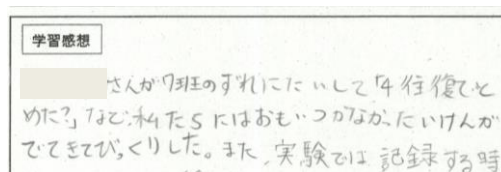 学習感想
さんが7班のずれにたいして「4往復でと
めた?」など、私たちにはおもいつかなかったいけんが
でてきてびっくりした。また、実験では記録する時